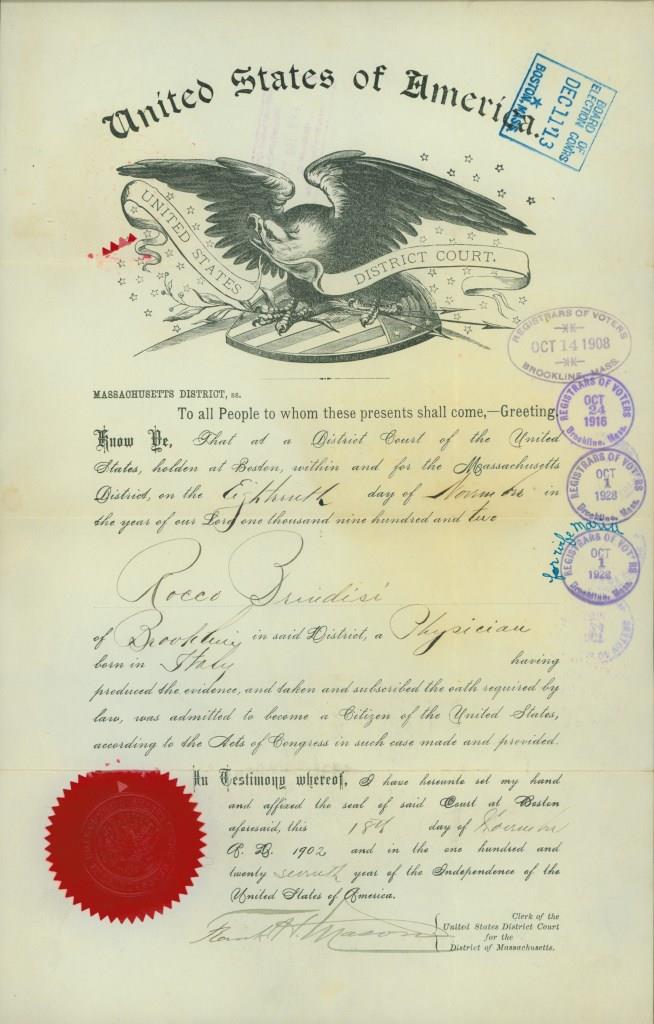 United States of America.
BOARD OF
ELECTION COM'RS
DEC 11 '13
BOSTON, MASS.
UNITED STATES
DISTRICT COURT.
REGISTRARS OF VOTERS
OCT 14 1908
BROOKLINE, MASS.
MASSACHUSETTS DISTRICT, ss.
To all People to whom these presents shall come,—Greeting,
REGISTRARS OF VOTERS
OCT
24
1916
Brookline, Mass.
Know Ye, That at a District Court of the United
States, holden at Boston, within and for the Massachusetts
District, on the Eighteenth day of November in
the year of our Lord one thousand nine hundred and two
REGISTRARS OF VOTERS
OCT
1
1928
Brookline, Mass.
for wife Maria
REGISTRARS OF VOTERS
OCT
1
1928
Brookline, Mass.
Rocco Brindisi
of Brookline in said District, a Physician
born in Italy having
produced the evidence, and taken and subscribed the oath required by
law, was admitted to become a Citizen of the United States,
according to the Acts of Congress in such case made and provided.
In Testimony whereof, I have hereunto set my hand
and affixed the seal of said Court at Boston
aforesaid, this 18th day of November
A. D. 1902 and in the one hundred and
twenty seventh year of the Independence of the
United States of America.
Frank H. Mason
Clerk of the
United States District Court
for the
District of Massachusetts.